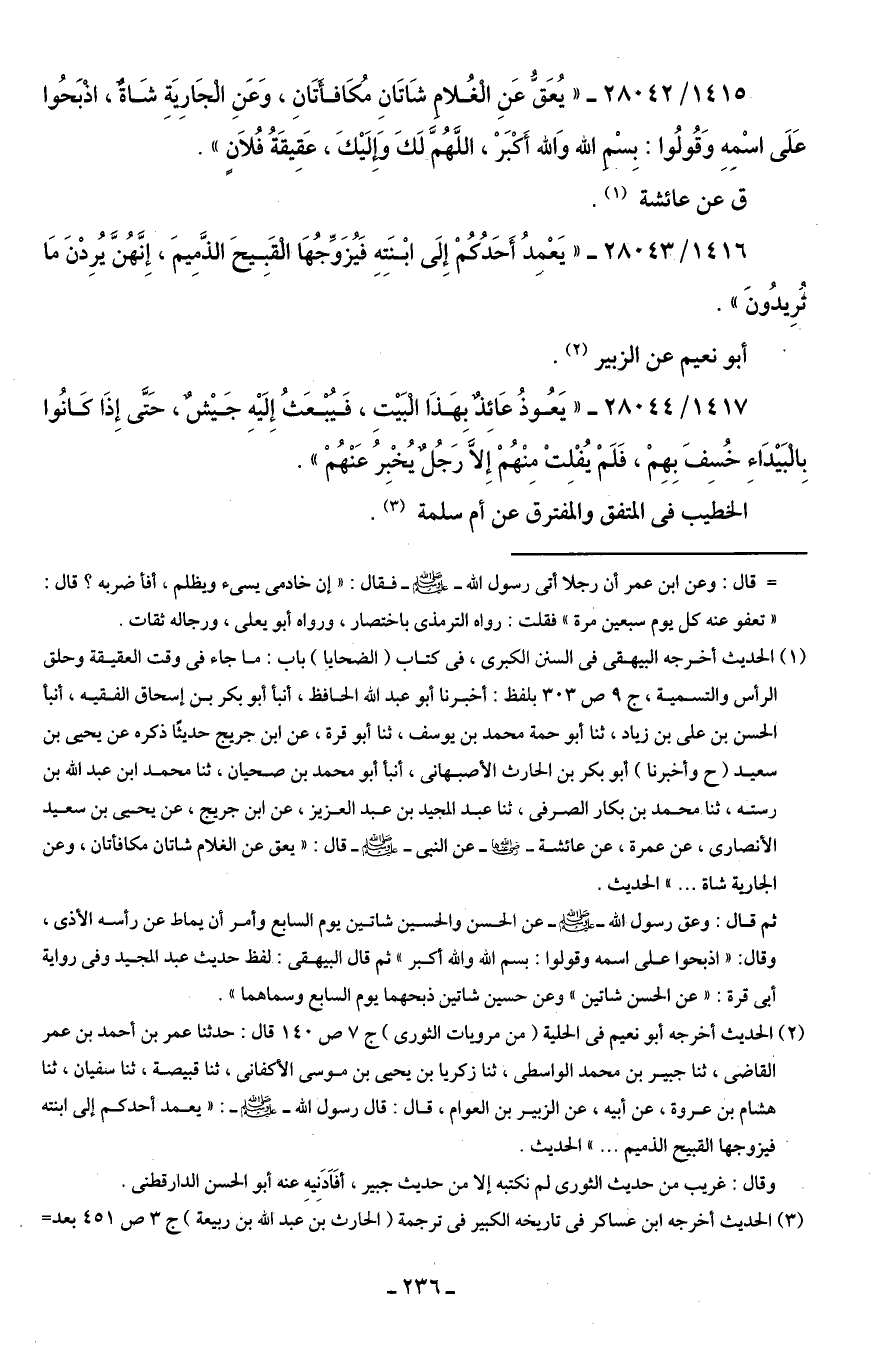 ٢٨٠٤٢/١٤١٥ ـ « يُعَقُّ عَنِ الْغُـلامِ شَاتَانِ مُكَافـأَتَانِ ، وَعَنِ الْجَارِيَةِ شَـاةٌ ، اذْبَحُوا
عَلَى اسْمِهِ وَقُولُوا : بِسْمِ الله وَالله أَكْبَرْ ، اللَّهُمَّ لَكَ وَإِلَيْكَ ، عَقِيقَةُ فُلَانٍ » .
ق عن عائشة (١) .
٢٨٠٤٣/١٤١٦ ـ « يَعْمِدُ أَحَدُكُمْ إِلَى ابْـنَتِهِ فَيُزَوِّجُهَا الْقَبِـيحَ الذَّمِيمَ ، إِنَّهُنَّ يُرِدْنَ مَا
تُرِيدُونَ » .
أبو نعيم عن الزبير (٢) .
٢٨٠٤٤/١٤١٧ ـ « يَعُـوذُ عَائِذٌ بِهَـذَا الْبَيْتِ ، فَـيُبْـعَثُ إِلَيْهِ جَـيْشٌ ، حَتَّى إِذَا كَـانُوا
بِالْبَيْدَاءِ خُسِفَ بِهِمْ ، فَلَمْ يُفْلِتْ مِنْهُمْ إِلاَّ رَجُلٌ يُخْبِرُ عَنْهُمْ » .
الخطيب فى المتفق والمفترق عن أم سلمة (٣) .
= قال : وعن ابن عمر أن رجلا أتى رسول الله ـ ﷺ ـ فـقال : « إن خادمى يسىء ويظلم ، أفأ ضربه ؟ قال :
« تعفو عنه كل يوم سبعين مرة » فقلت : رواه الترمذى باختصار ، ورواه أبو يعلى ، ورجاله ثقات .
(١) الحديث أخـرجه البيهـقى فى السنن الكبرى ، فى كتـاب ( الضحايا ) باب : مـا جاء فى وقت العقيـقة وحلق
الرأس والتسـمية ، ج ٩ ص ٣٠٣ بلفظ : أخبـرنا أبو عبد الله الحـافظ ، أنبـأ أبو بكر بـن إسحاق الفـقيـه ، أنبـأ
الحسن بن على بن زياد ، ثنا أبو حمة محمد بن يوسف ، ثنا أبو قرة ، عن ابن جريج حديثًا ذكره عن يحيى بن
سعيـد ( ح وأخبرنا ) أبو بكر بن الحارث الأصبـهانى ، أنبـأ أبو محمد بن صـحيان ، ثنا محمـد ابن عبد الله بن
رستـه ، ثنا محـمد بن بكار الصـرفى ، ثنا عبـد المجيد بن عبـد العـزيز ، عن ابن جـريج ، عن يحـيى بن سـعيد
الأنصارى ، عن عمرة ، عن عائشـة ـ رضي الله عنها ـ عن النبى ـ ﷺ ـ قال : « يعق عن الغلام شاتان مكافأتان ، وعن
الجارية شاة ... » الحديث .
ثم قـال : وعق رسول الله ـ ﷺ ـ عن الحـسن والحسين شاتـين يوم السابع وأمـر أن يماط عن رأسـه الأذى ،
وقال: « اذبحوا عـلى اسمه وقولوا : بسم الله والله أكـبر » ثم قال البيهـقى : لفظ حديث عبد المجـيد وفى رواية
أبى قرة : « عن الحسن شاتين » وعن حسين شاتين ذبحهما يوم السابع وسماهما » .
(٢) الحديث أخرجه أبو نعيم فى الحلية ( من مرويات الثورى ) ج ٧ ص ١٤٠ قال : حدثنا عمر بن أحمد بن عمر
القاضى ، ثنا جبيـر بن محمد الواسطى ، ثنا زكريا بن يحيى بن مـوسى الأكفانى ، ثنا قبيصـة ، ثنا سفيان ، ثنا
هشام بن عـروة ، عن أبيه ، عن الزبيـر بن العوام ، قـال : قال رسول الله ـ ﷺ ـ : « يعـمد أحدكـم إلى ابنته
فيزوجها القبيح الذميم ... » الحديث .
وقال : غريب من حديث الثورى لم نكتبه إلا من حديث جبير ، أَفَادَنِيهِ عنه أبو الحسن الدارقطنى .
(٣) الحديث أخرجه ابن عساكر فى تاريخه الكبير فى ترجمة ( الحارث بن عبد الله بن ربيعة ) ج ٣ ص ٤٥١ بعد=
ـ ٢٣٦ ـ